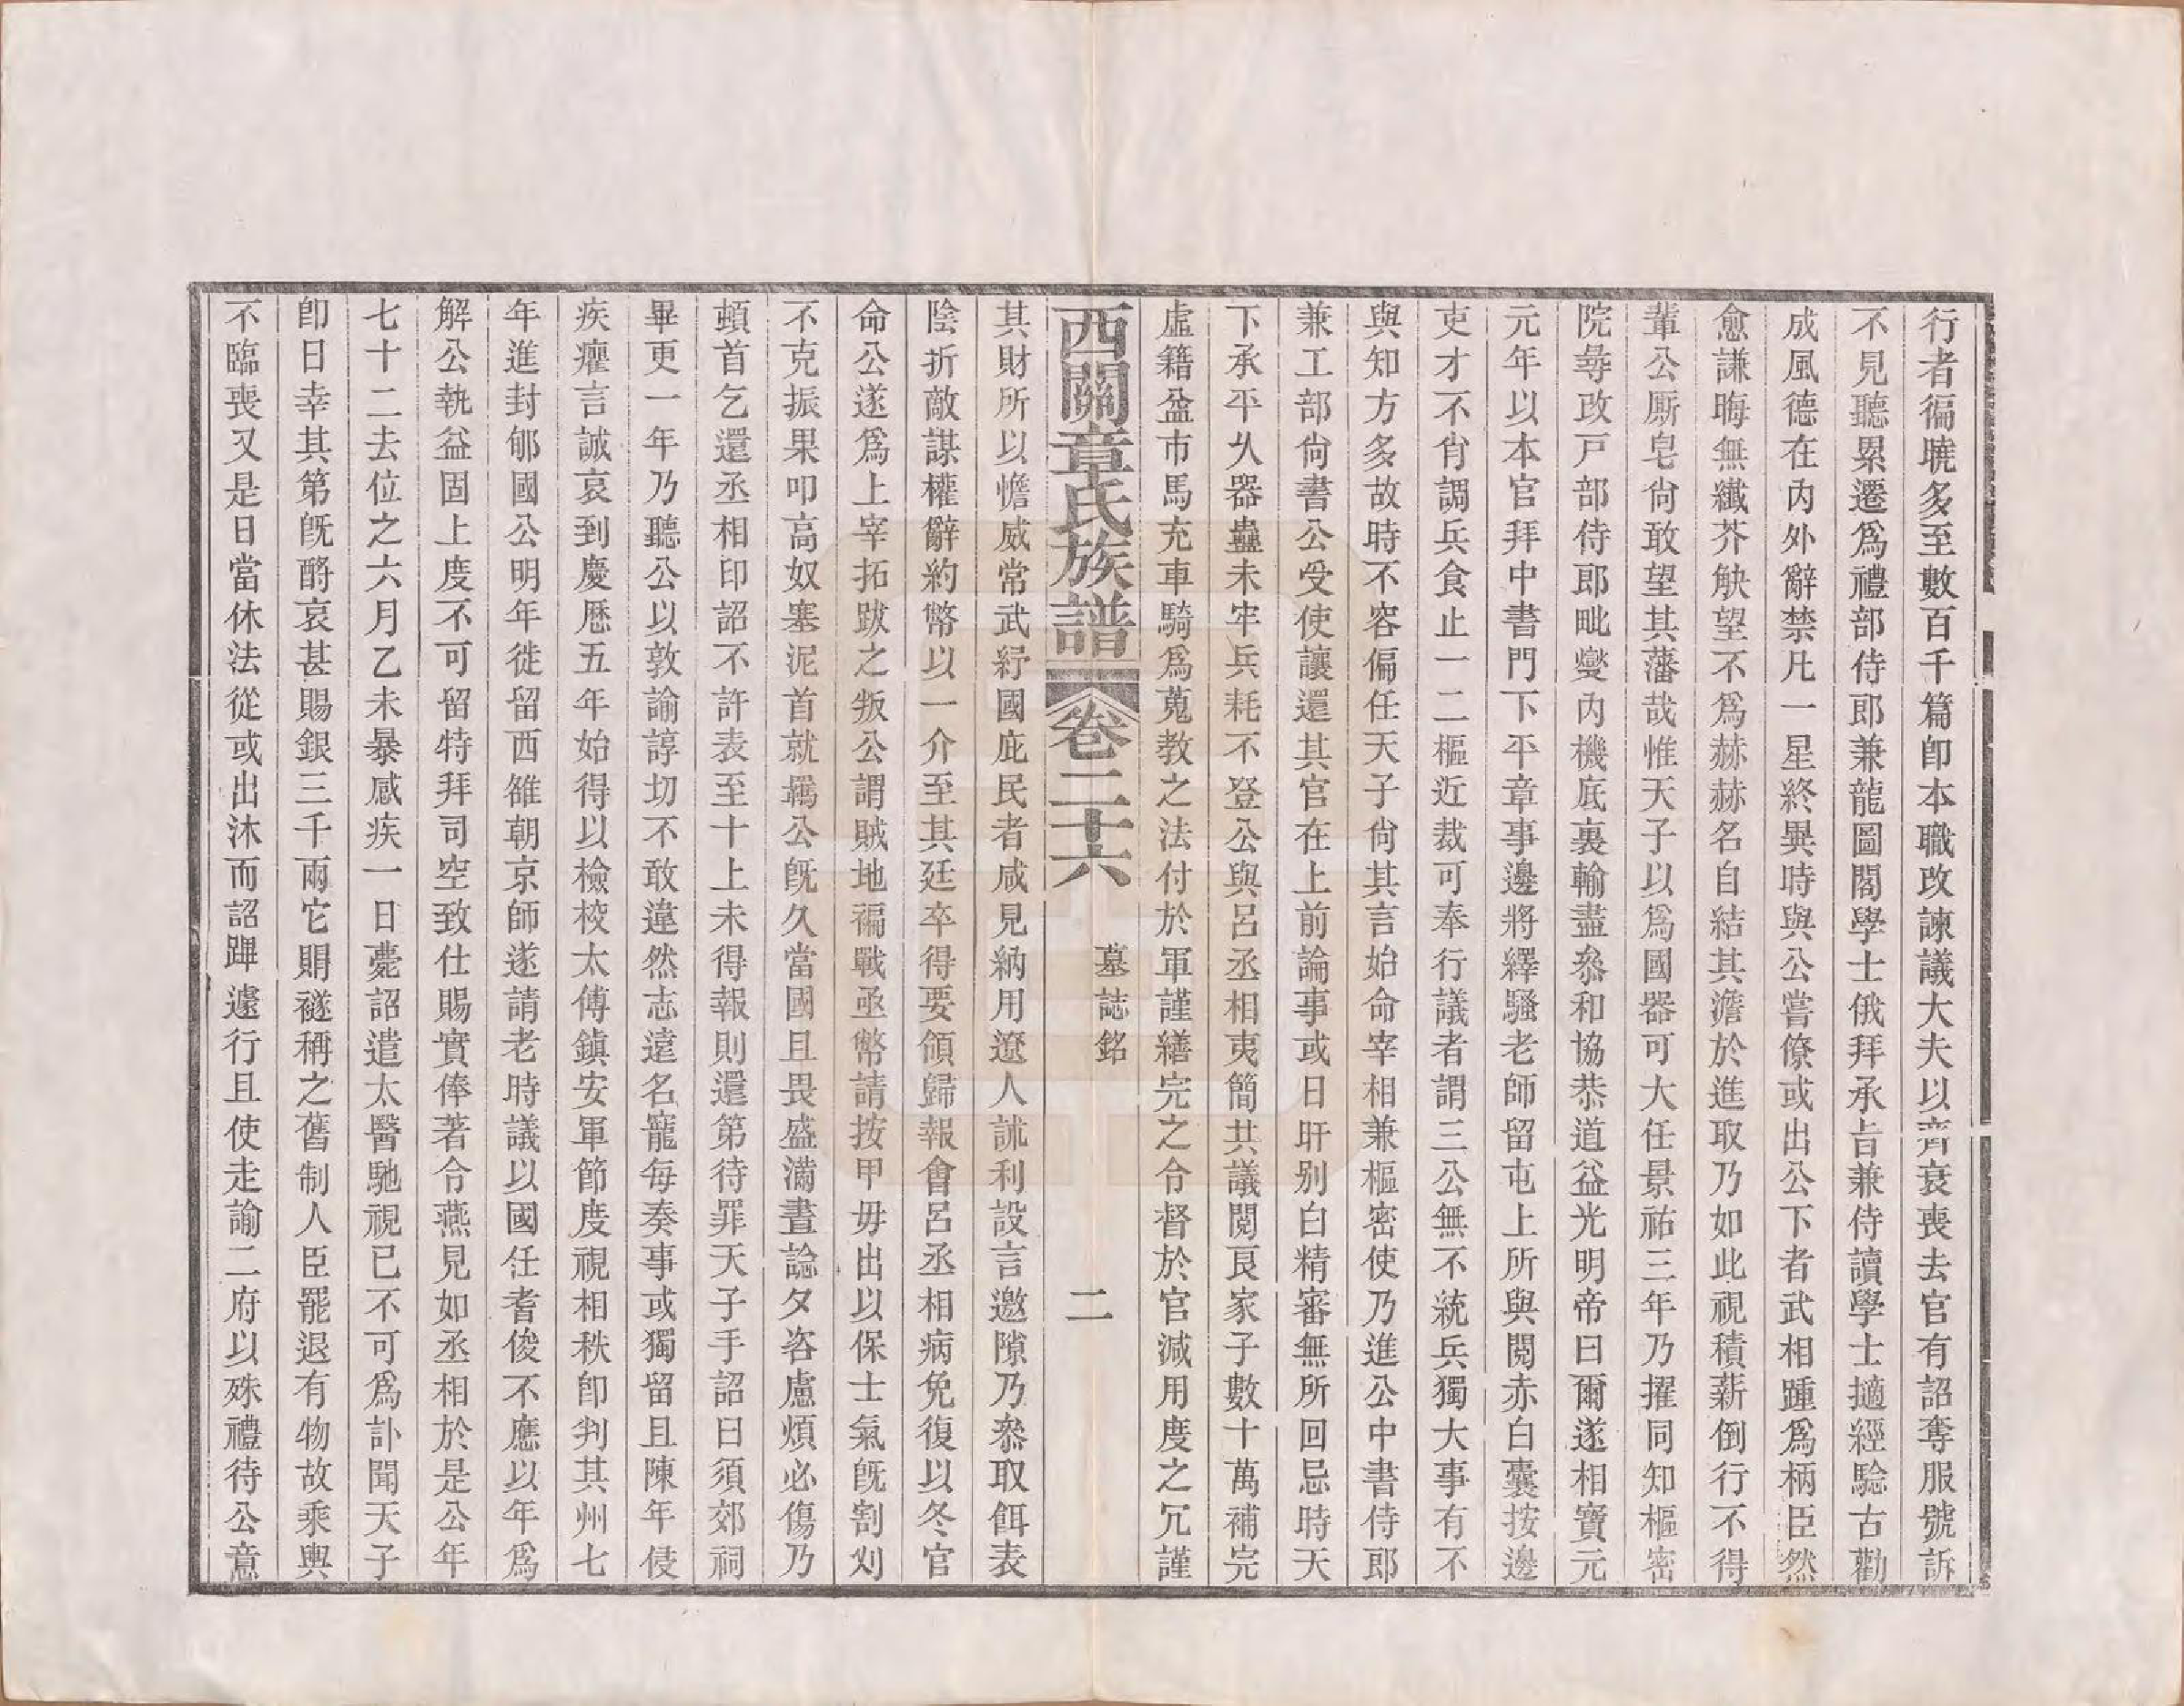 行者徧曉多至數百千篇卽本職改諫議大夫以齊衰喪去官有詔奪服號訴
不見聽累遷爲禮部侍郎兼龍圖閣學士俄拜承旨兼侍讀學士擿經騐古勸
成風德在內外辭禁凡一星終異時與公嘗僚或出公下者武相踵爲柄臣然
愈謙晦無纖芥觖望不爲赫赫名自結其澹於進取乃如此視積薪倒行不得
輩公厮皂尙敢望其藩哉惟天子以爲國器可大任景祐三年乃擢同知樞密
院尋改戸部侍郎毗燮內機底裏輸盡叅和協恭道益光明帝曰爾遂相寶元
元年以本官拜中書門下平章事邊將繹騷老師留屯上所與閱赤白囊按邊
吏才不肖調兵食止一二樞近裁可奉行議者謂三公無不統兵獨大事有不
與知方多故時不容偏任天子尙其言始命宰相兼樞密使乃進公中書侍郎
兼工部尙書公受使讓還其官在上前論事或日旰別白精審無所回忌時天
下承平乆器蠱未牢兵耗不登公與呂丞相夷簡共議閱良家子數十萬補完
虛籍盈市馬充車騎爲蒐教之法付於軍謹繕完之令督於官減用度之冗謹
西關章氏族譜 卷二十六 墓誌銘 二
其財所以憺威常武紓國庇民者咸見納用遼人訹利設言邀隙乃叅取餌表
陰折敵謀權辭約幣以一介至其廷卒得要領歸報會呂丞相病免復以冬官
命公遂爲上宰拓跋之叛公謂賊地褊戰亟幣請按甲毋出以保士氣旣割刈
不克振果叩高奴塞泥首就羈公旣久當國且畏盛滿晝諗夕咨慮煩必傷乃
頓首乞還丞相印詔不許表至十上未得報則還第待罪天子手詔曰須郊祠
畢更一年乃聽公以敦諭諄切不敢違然志遠名寵每奏事或獨留且陳年侵
疾癯言誠哀到慶歷五年始得以檢校太傅鎭安軍節度視相秩卽判其州七
年進封郇國公明年徙留西雒朝京師遂請老時議以國任耆俊不應以年爲
解公執益固上度不可留特拜司空致仕賜實俸著令燕見如丞相於是公年
七十二去位之六月乙未暴感疾一日薨詔遣太醫馳視已不可爲訃聞天子
卽日幸其第旣酹哀甚賜銀三千兩它賵襚稱之舊制人臣罷退有物故乘輿
不臨喪又是日當休法從或出沐而詔蹕遽行且使走諭二府以殊禮待公意